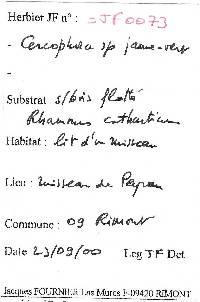 Herbier JF n° : JF0073
- Cercophora sp jaune-vert
-
Substrat s/bois flotté
Rhamnus catharticus
Habitat : lit d'un ruisseau
Lieu : ruisseau de Peyrau
Commune : 09 Rimont
Date 23/09/00 Leg JF Det
Jacques FOURNIER Las Muros F-09420 RIMONT